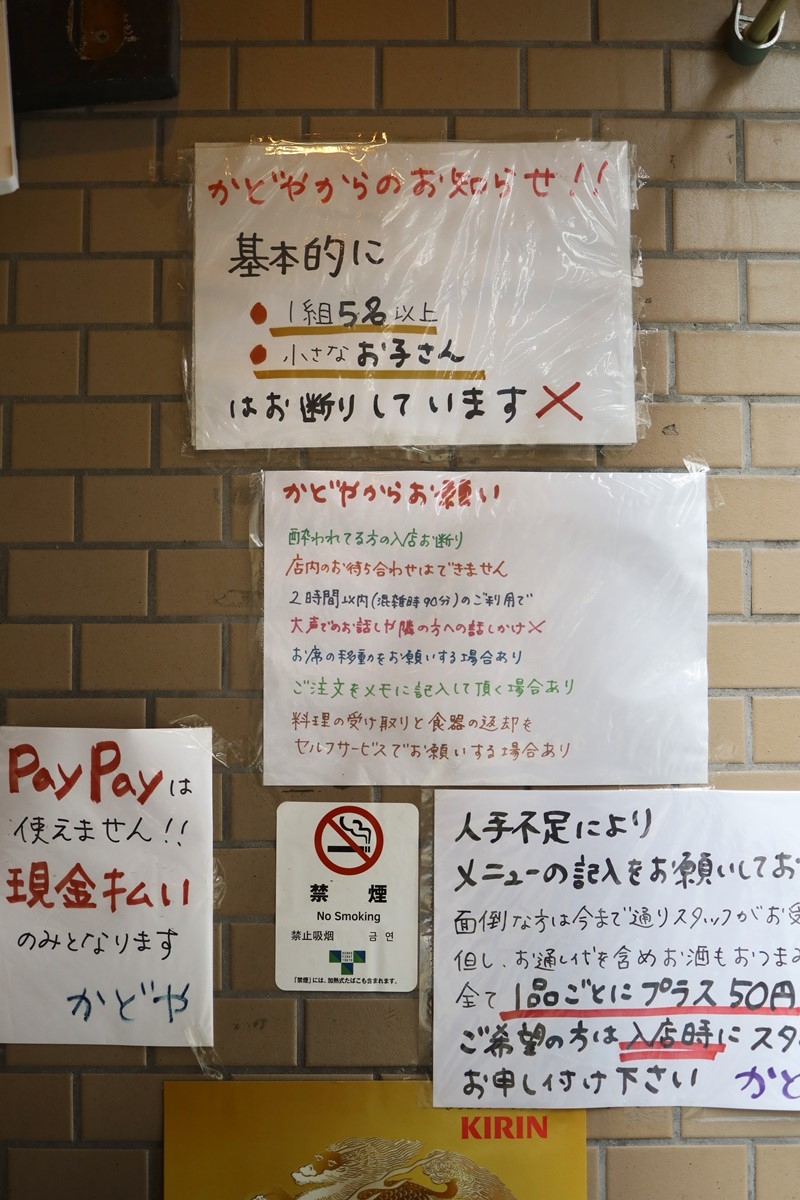 かどやからのお知らせ!!
基本的に
● 1組5名以上
● 小さなお子さん
はお断りしています✕
かどやからお願い
酔われてる方の入店お断り
店内のお待ち合わせはできません
2時間以内(混雑時90分)のご利用で
大声でのお話しや隣の方への話しかけ✕
お席の移動をお願いする場合あり
ご注文をメモに記入して頂く場合あり
料理の受け取りと食器の返却を
セルフサービスでお願いする場合あり
PayPayは
使えません!!
現金払い
のみとなります
かどや
禁煙
No Smoking
禁止吸烟 금연
「禁煙」には、加熱式たばこも含まれます。
人手不足により
メニューの記入をお願いしてお
面倒な方は今まで通りスタッフがお受
但し、お通し代を含めお酒もおつまみ
全て1品ごとにプラス50円
ご希望の方は入店時にスタ
お申し付け下さい かど
KIRIN